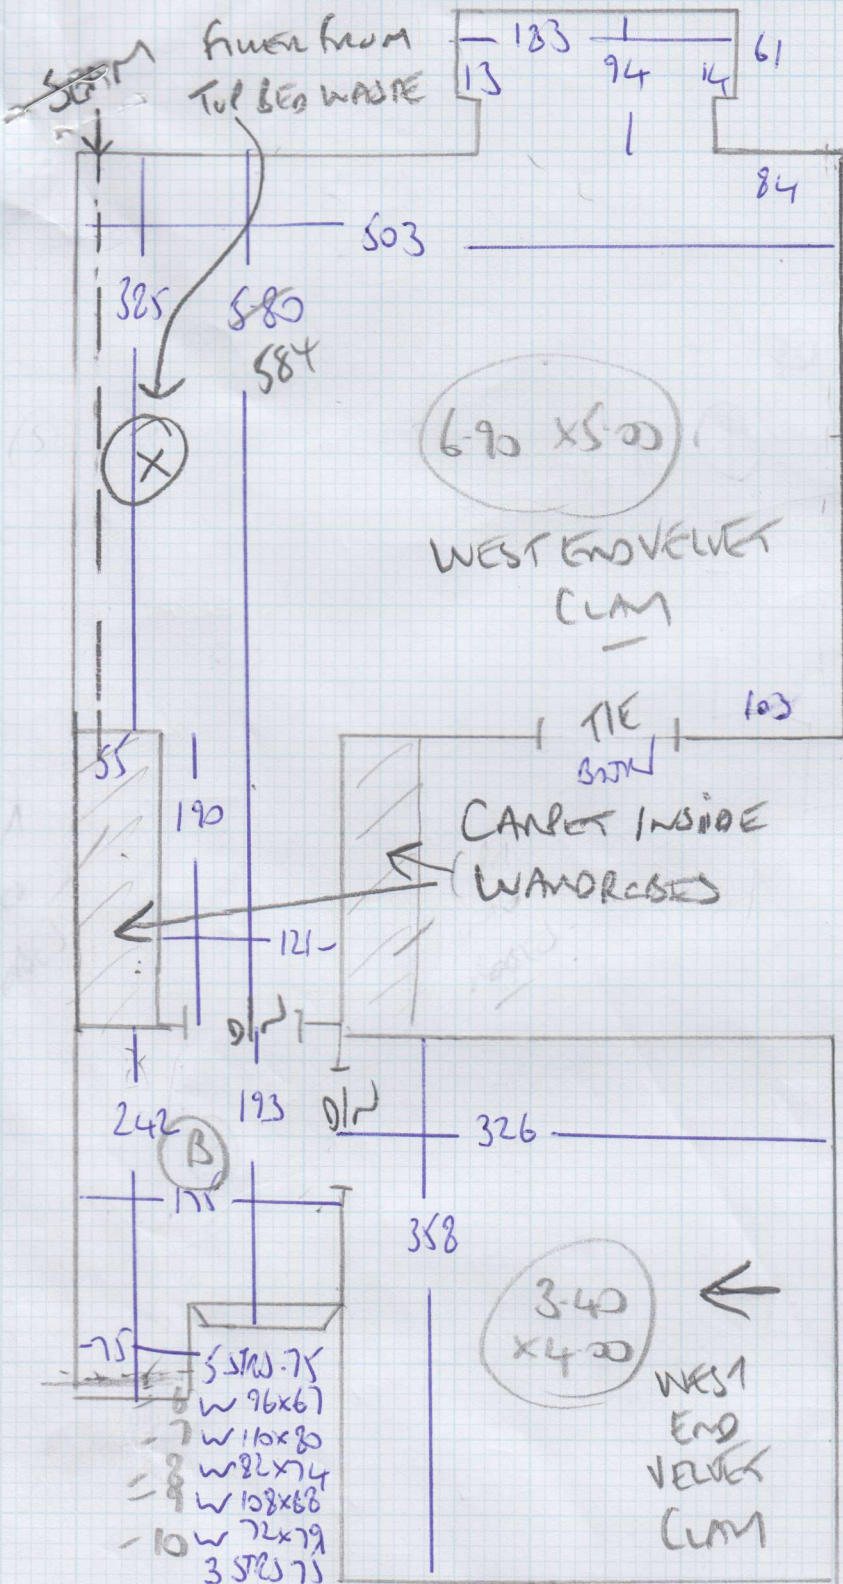 SEAM
FILLER FROM
TOP BED WASTE
183
13
94
14
61
84
503
325
580
584
X
6.90 X 5.00
WEST END VELVET
CLAM
55
190
TIE
103
CARPET INSIDE
WARDROBES
121
D/N
242
193
D/N
B
175
326
358
75
3.40
X 4.00
WEST
END
VELVET
CLAM
5 STRS .75
6 W 96X67
7 W 110X80
8 W 82X74
9 W 108X68
10 W 72X79
3 STRS 75